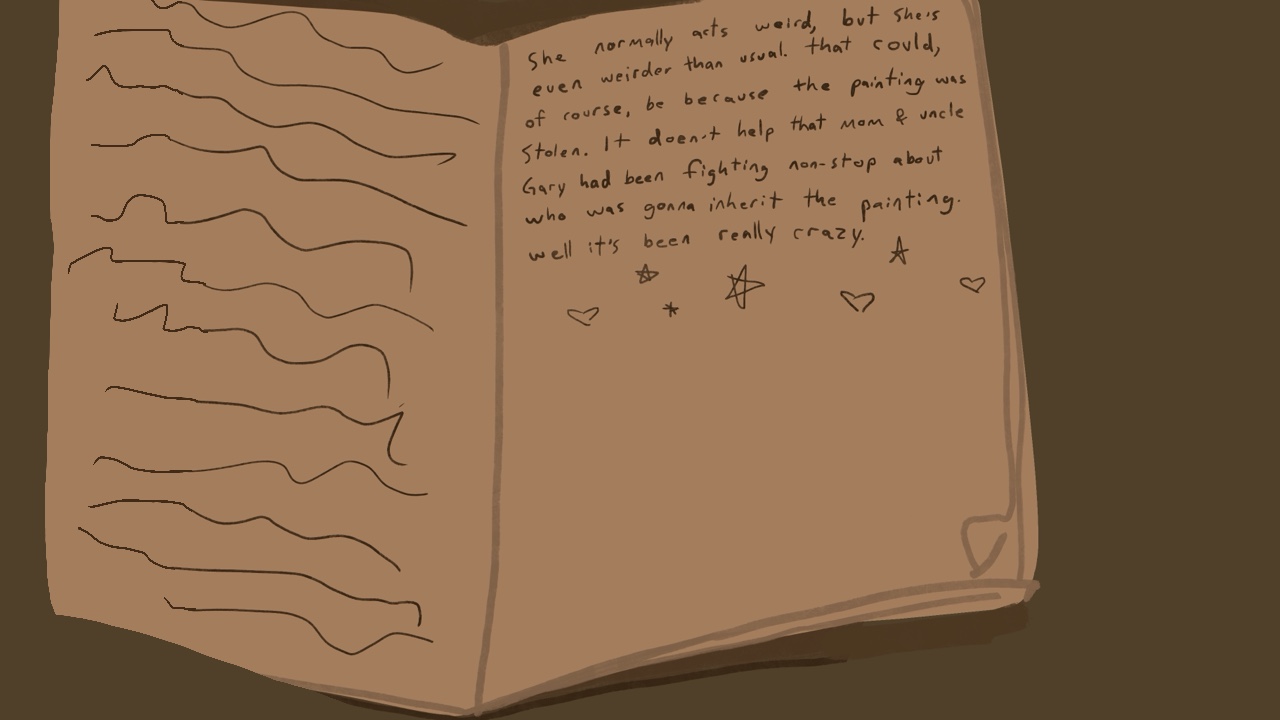 She normally acts weird, but she's
even weirder than usual. that could,
of course, be because the painting was
stolen. It doen't help that mom & uncle
Gary had been fighting non-stop about
who was gonna inherit the painting.
well it's been really crazy.